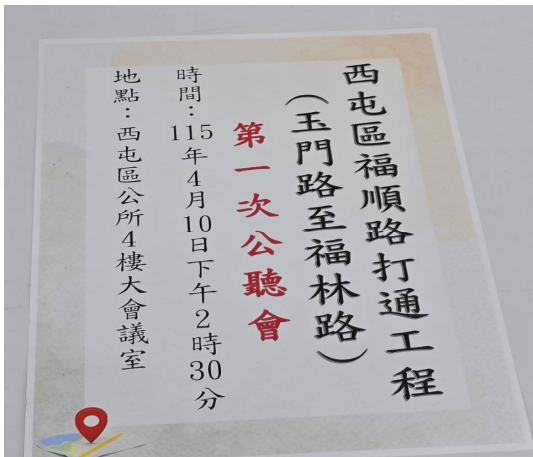 西屯區福順路打通工程
（玉門路至福林路）
第一次公聽會
時間：115年4月10日下午2時30分
地點：西屯區公所4樓大會議室